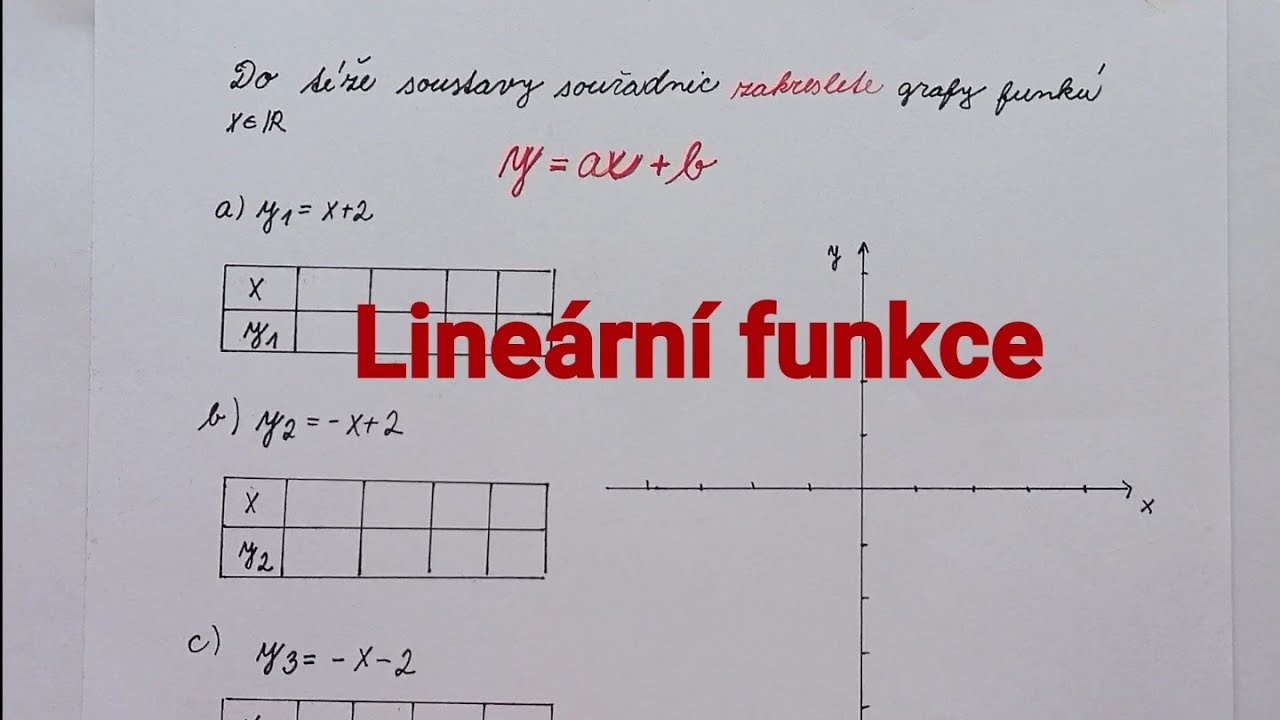 Do téže soustavy souřadnic zakreslete grafy funkcí
x∈ℝ
y = ax + b
a) y₁ = x+2
x
y₁
Lineární funkce
y
x
b) y₂ = -x+2
x
y₂
c) y₃ = -x-2